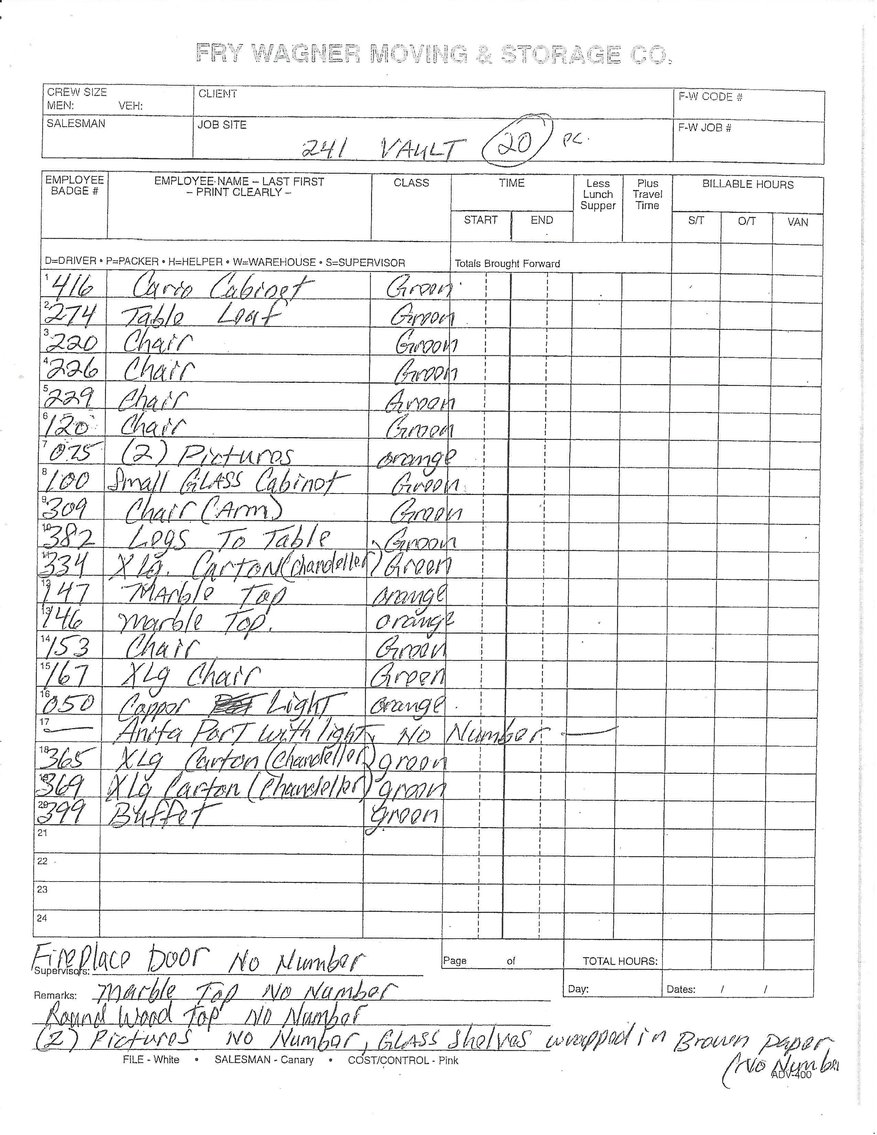 FRY WAGNER MOVING & STORAGE CO.
CREW SIZE
MEN: VEH:
CLIENT
F-W CODE #
SALESMAN
JOB SITE
241 VAULT 20 PC.
F-W JOB #
EMPLOYEE BADGE #
EMPLOYEE NAME – LAST FIRST
– PRINT CLEARLY –
CLASS
TIME
START END
Less Lunch Supper
Plus Travel Time
BILLABLE HOURS
S/T O/T VAN
D=DRIVER • P=PACKER • H=HELPER • W=WAREHOUSE • S=SUPERVISOR Totals Brought Forward
1 416 Curio Cabinet Green
2 274 Table Leaf Green
3 220 Chair Green
4 226 Chair Green
5 229 Chair Green
6 120 Chair Green
7 075 (2) Pictures orange
8 100 Small GLASS Cabinet Green
9 309 Chair (Arm) Green
10 382 Legs To Table Green
11 334 XLg. CARTON (chandeller) Green
12 147 MArble Top orange
13 146 marble Top. orange
14 153 Chair Green
15 167 XLg Chair Green
16 050 Copper Light orange
17 — Part with light, No Number —
18 365 XLg Carton (Chandeller) green
19 369 XLg Carton (Chandeller) green
20 399 Buffet green
21
22
23
24
Fireplace Door No Number
Supervisors:
Page of
TOTAL HOURS:
Remarks: Marble Top No Number
Day: Dates: / /
Round Wood Top No Number
(2) Pictures No Number, GLASS shelves wrapped in Brown paper
(No Number
FILE - White • SALESMAN - Canary • COST/CONTROL - Pink
ADV-400